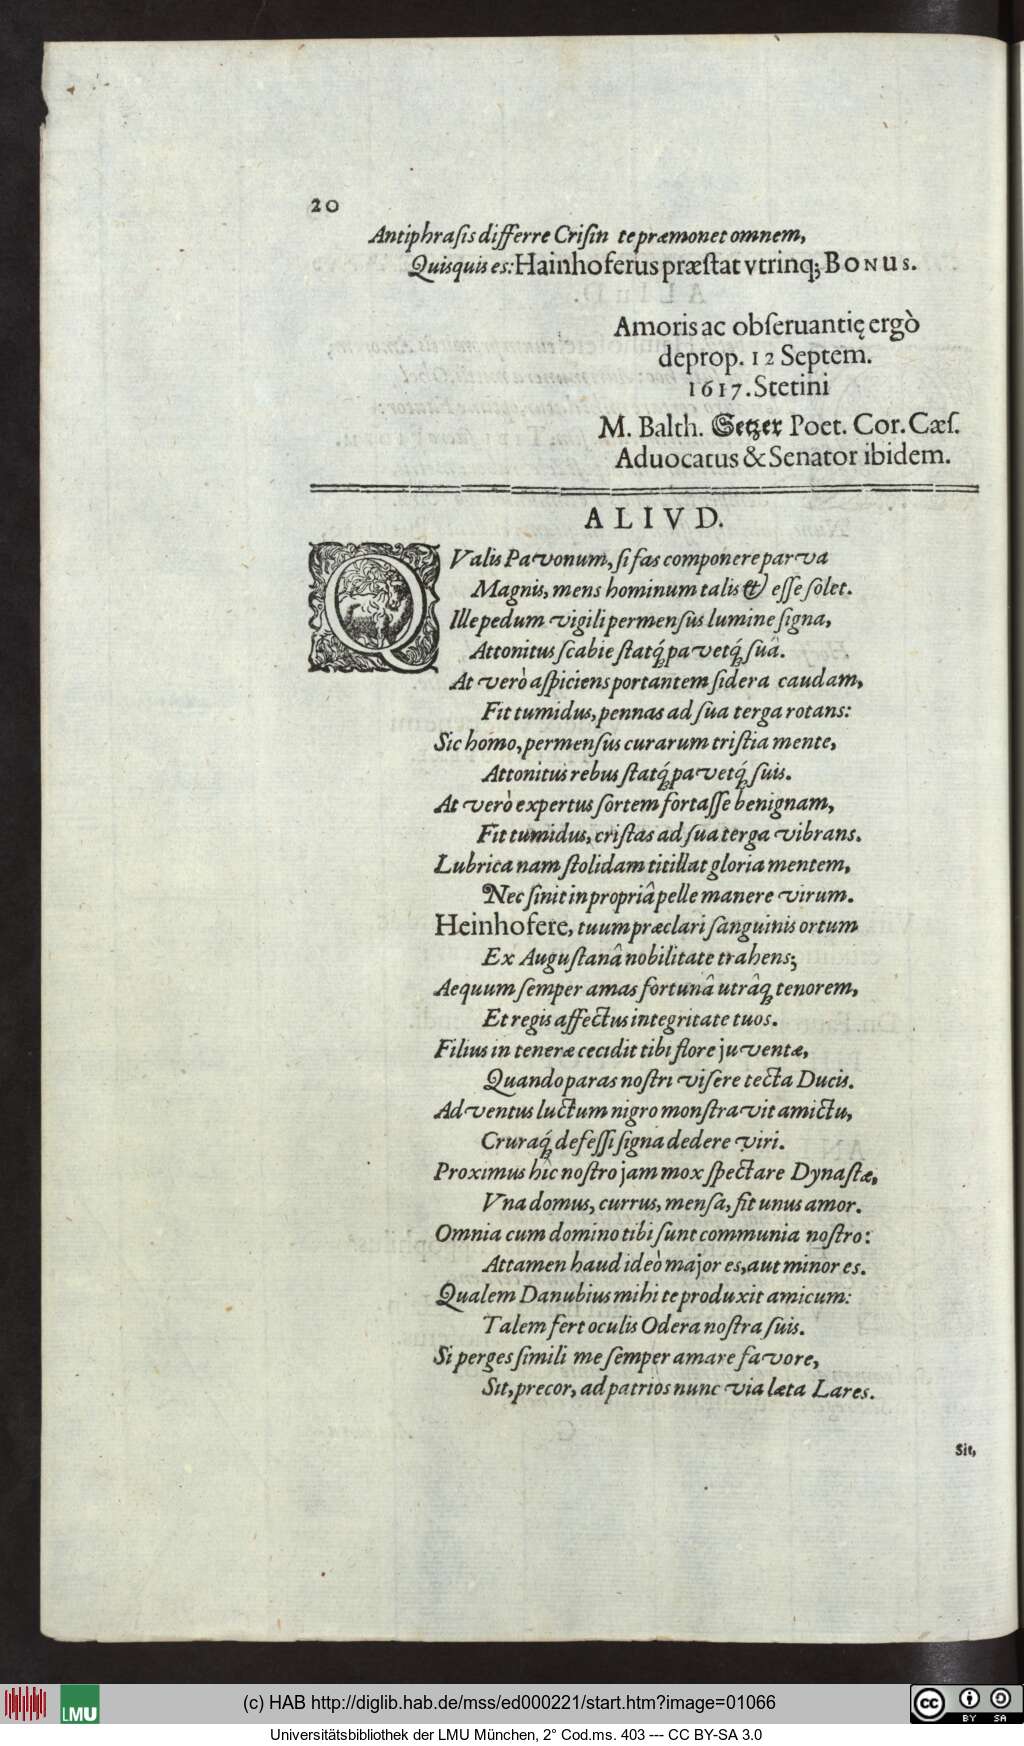 20
Antiphraſis differre Criſin te præmonet omnem,
Quisquis es: Hainhoferus præſtat vtrinq; BONUS.
Amoris ac obſeruantię ergò
deprop. 12 Septem.
1617. Stetini
M. Balth. Setzer Poet. Cor. Cæſ.
Aduocatus & Senator ibidem.
ALIVD.
QValis Pavonum, ſi fas componere parva
Magnis, mens hominum talis et eſſe ſolet.
Ille pedum vigili permenſus lumine ſigna,
Attonitus ſcabie ſtatq́; pavetq́; ſuâ.
At verò aſpiciens portantem ſidera caudam,
Fit tumidus, pennas ad ſua terga rotans:
Sic homo, permenſus curarum triſtia mente,
Attonitus rebus ſtatq́; pavetq́; ſuis.
At verò expertus ſortem fortaſſe benignam,
Fit tumidus, criſtas ad ſua terga vibrans.
Lubrica nam ſtolidam titillat gloria mentem,
Nec ſinit in propriâ pelle manere virum.
Heinhofere, tuum præclari ſanguinis ortum
Ex Auguſtanâ nobilitate trahens;
Aequum ſemper amas fortunâ utrâq; tenorem,
Et regis affectus integritate tuos.
Filius in teneræ cecidit tibi flore juventæ,
Quando paras noſtri viſere tecta Ducis.
Adventus luctum nigro monſtravit amictu,
Cruraq́; defeſſi ſigna dedere viri.
Proximus hîc noſtro jam mox ſpectare Dynaſtæ,
Vna domus, currus, menſa, fit unus amor.
Omnia cum domino tibi ſunt communia noſtro:
Attamen haud ideò major es, aut minor es.
Qualem Danubius mihi te produxit amicum:
Talem fert oculis Odera noſtra ſuis.
Si perges ſimili me ſemper amare favore,
Sit, precor, ad patrios nunc via læta Lares.
Sit,
LMU
(c) HAB http://diglib.hab.de/mss/ed000221/start.htm?image=01066
cc BY SA
Universitätsbibliothek der LMU München, 2° Cod.ms. 403 --- CC BY-SA 3.0